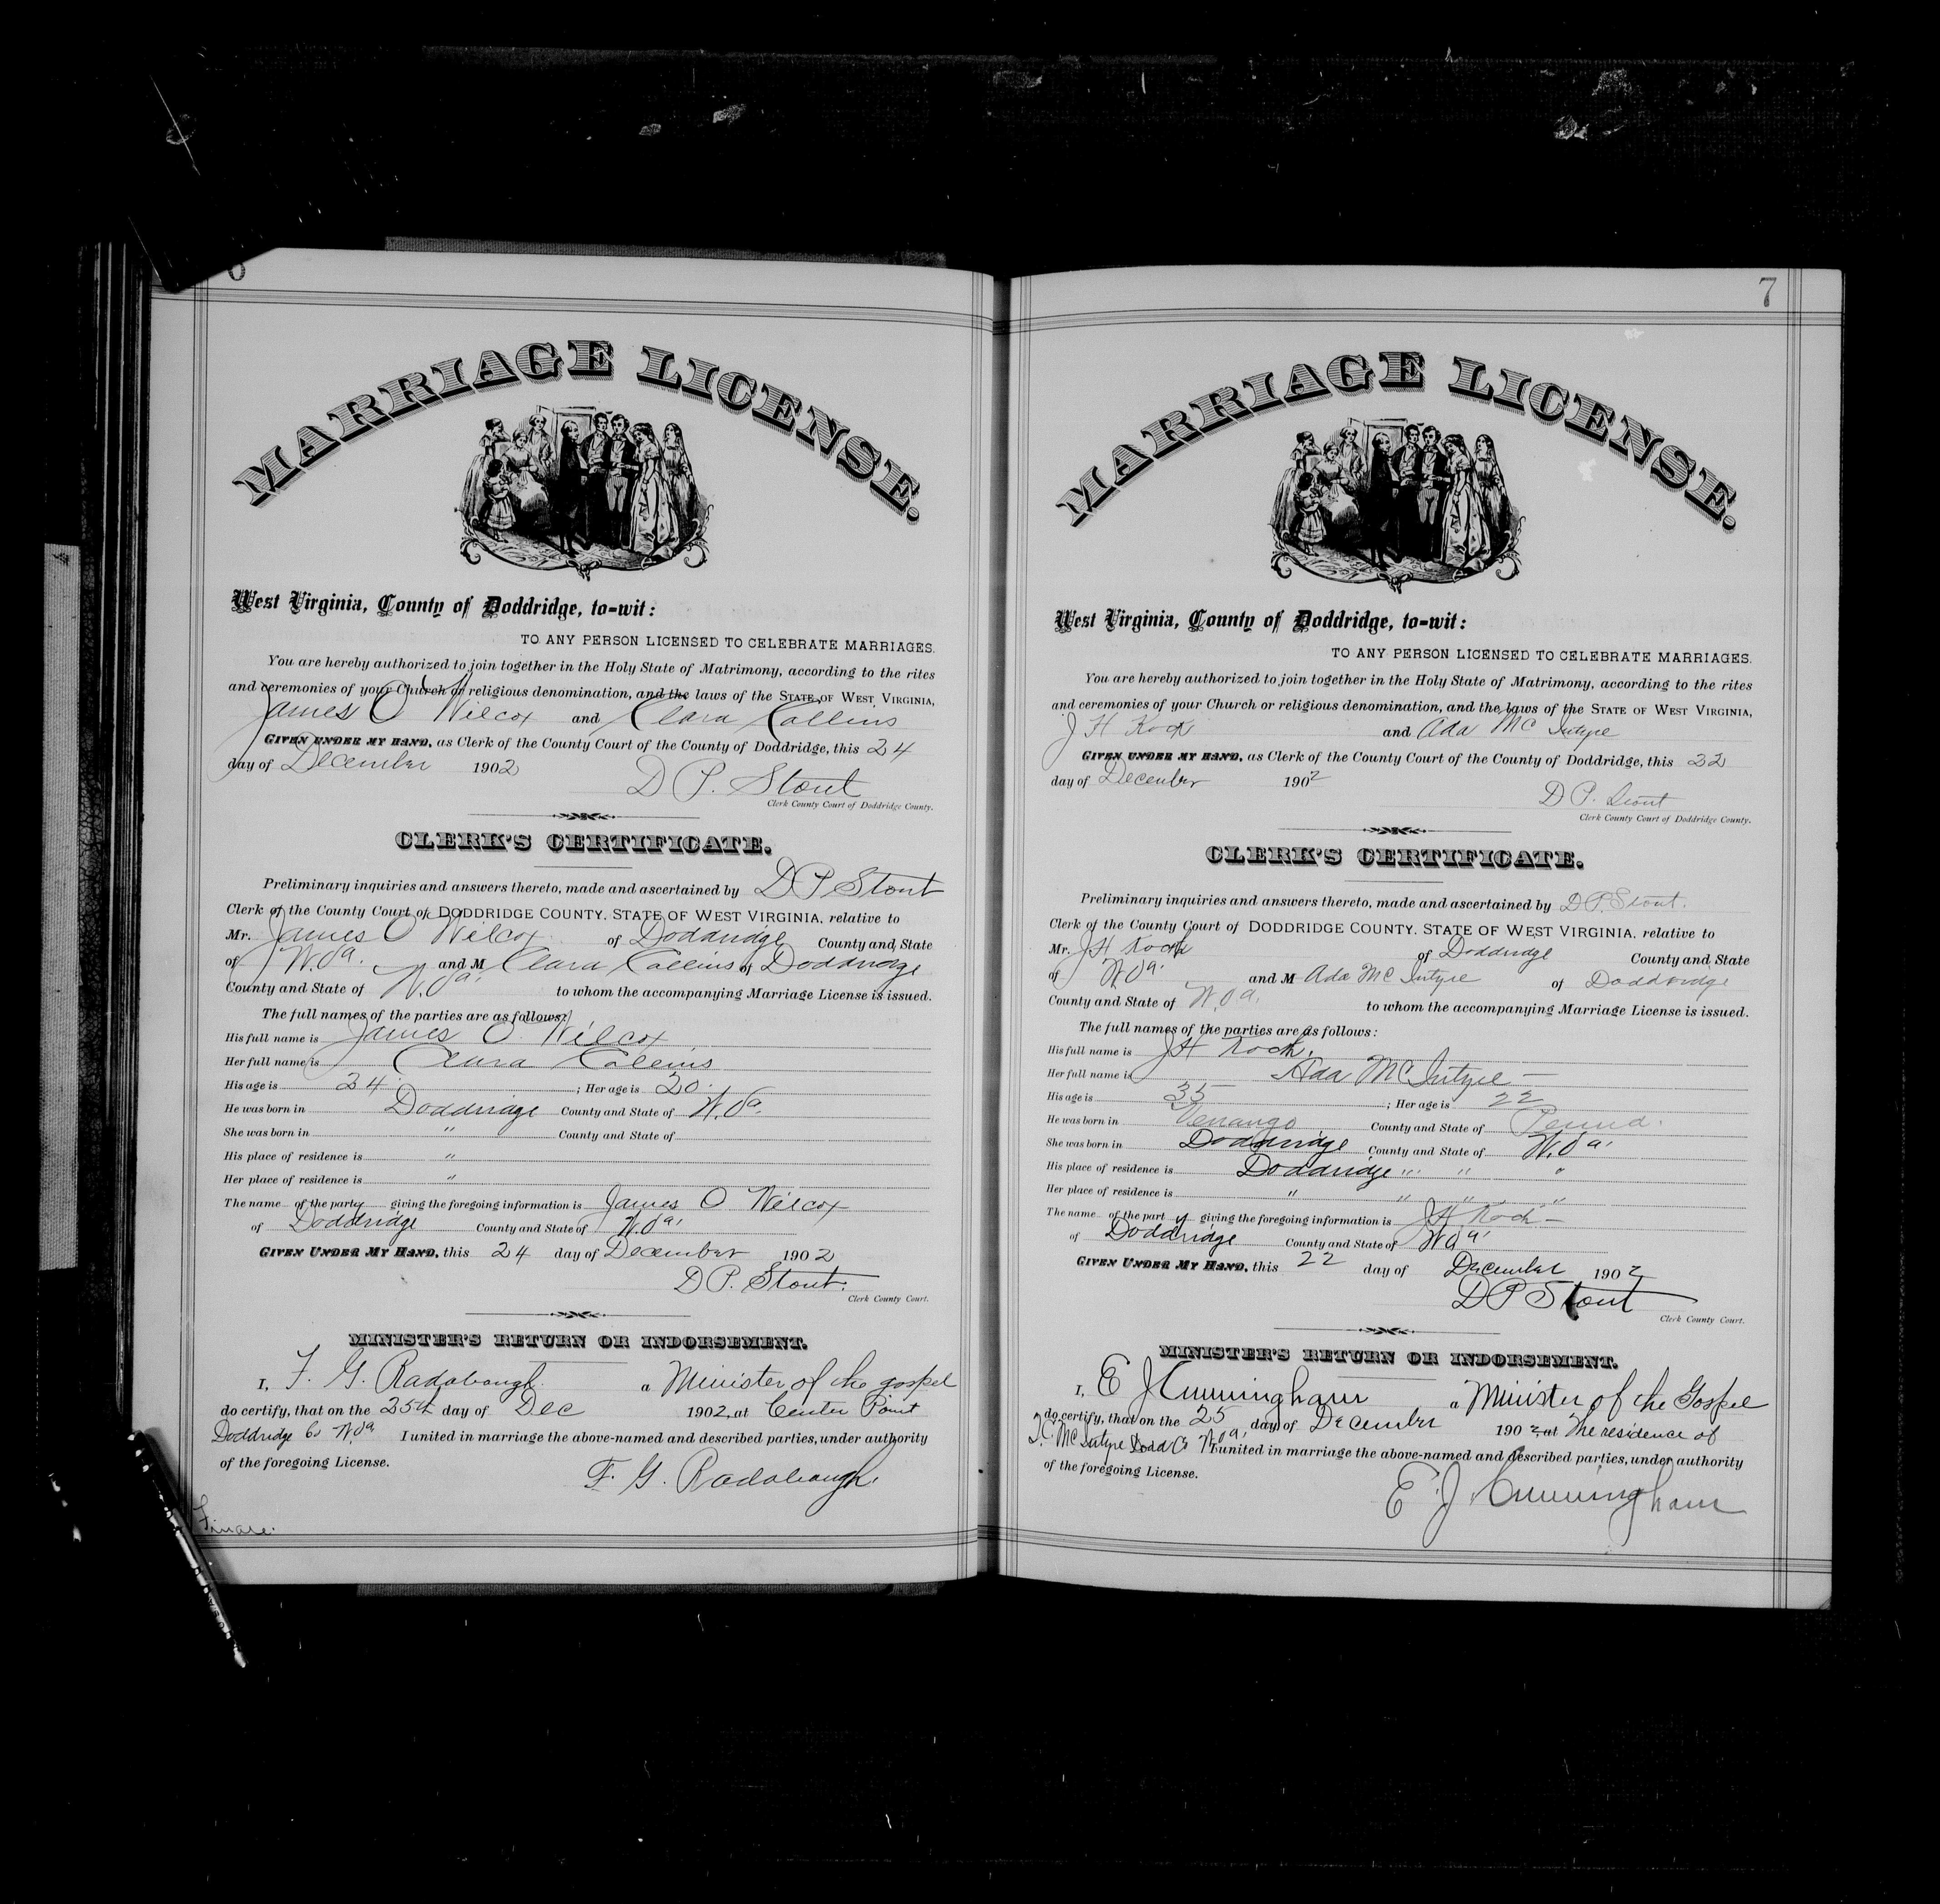 6
MARRIAGE LICENSE.
West Virginia, County of Doddridge, to-wit:
TO ANY PERSON LICENSED TO CELEBRATE MARRIAGES.
You are hereby authorized to join together in the Holy State of Matrimony, according to the rites
and ceremonies of your Church or religious denomination, and the laws of the STATE OF WEST VIRGINIA,
James O Wilcox and Clara Collins
GIVEN UNDER MY HAND, as Clerk of the County Court of the County of Doddridge, this 24
day of December 1902
D P. Stout
Clerk County Court of Doddridge County.
CLERK'S CERTIFICATE.
Preliminary inquiries and answers thereto, made and ascertained by D P Stout
Clerk of the County Court of DODDRIDGE COUNTY, STATE OF WEST VIRGINIA, relative to
Mr. James O Wilcox of Doddridge County and State
of W. Va. and M Clara Collins of Doddridge
County and State of W. Va. to whom the accompanying Marriage License is issued.
The full names of the parties are as follows:
His full name is James O Wilcox
Her full name is Clara Collins
His age is 24 ; Her age is 20.
He was born in Doddridge County and State of W. Va.
She was born in " County and State of
His place of residence is "
Her place of residence is "
The name of the party giving the foregoing information is James O Wilcox
of Doddridge County and State of W. Va.
GIVEN UNDER MY HAND, this 24 day of December 1902
D P. Stout.
Clerk County Court.
MINISTER'S RETURN OR INDORSEMENT.
I, F. G. Radabaugh a Minister of the gospel
do certify, that on the 25th day of Dec 1902, at Center Point
Doddridge Co W. Va I united in marriage the above-named and described parties, under authority
of the foregoing License.
F. G. Radabaugh.
7
MARRIAGE LICENSE.
West Virginia, County of Doddridge, to-wit:
TO ANY PERSON LICENSED TO CELEBRATE MARRIAGES.
You are hereby authorized to join together in the Holy State of Matrimony, according to the rites
and ceremonies of your Church or religious denomination, and the laws of the STATE OF WEST VIRGINIA,
J H Koch and Ada McIntyre
GIVEN UNDER MY HAND, as Clerk of the County Court of the County of Doddridge, this 22
day of December 1902
D P. Stout
Clerk County Court of Doddridge County.
CLERK'S CERTIFICATE.
Preliminary inquiries and answers thereto, made and ascertained by D P. Stout.
Clerk of the County Court of DODDRIDGE COUNTY, STATE OF WEST VIRGINIA, relative to
Mr. J H Koch of Doddridge County and State
of W Va. and M Ada McIntyre of Doddridge
County and State of W. Va. to whom the accompanying Marriage License is issued.
The full names of the parties are as follows:
His full name is J H Koch.
Her full name is Ada McIntyre —
His age is 35 ; Her age is 22
He was born in Venango County and State of Penna.
She was born in Doddridge County and State of W. Va.
His place of residence is Doddridge " " "
Her place of residence is " " " "
The name of the party giving the foregoing information is J H Koch —
of Doddridge County and State of W Va.
GIVEN UNDER MY HAND, this 22 day of December 1902
D P Stout
Clerk County Court.
MINISTER'S RETURN OR INDORSEMENT.
I, E J Cunningham a Minister of the Gospel
do certify, that on the 25 day of December 1902 at The residence of
McIntyre Dodd Co W. Va. I united in marriage the above-named and described parties, under authority
of the foregoing License.
E. J. Cunningham